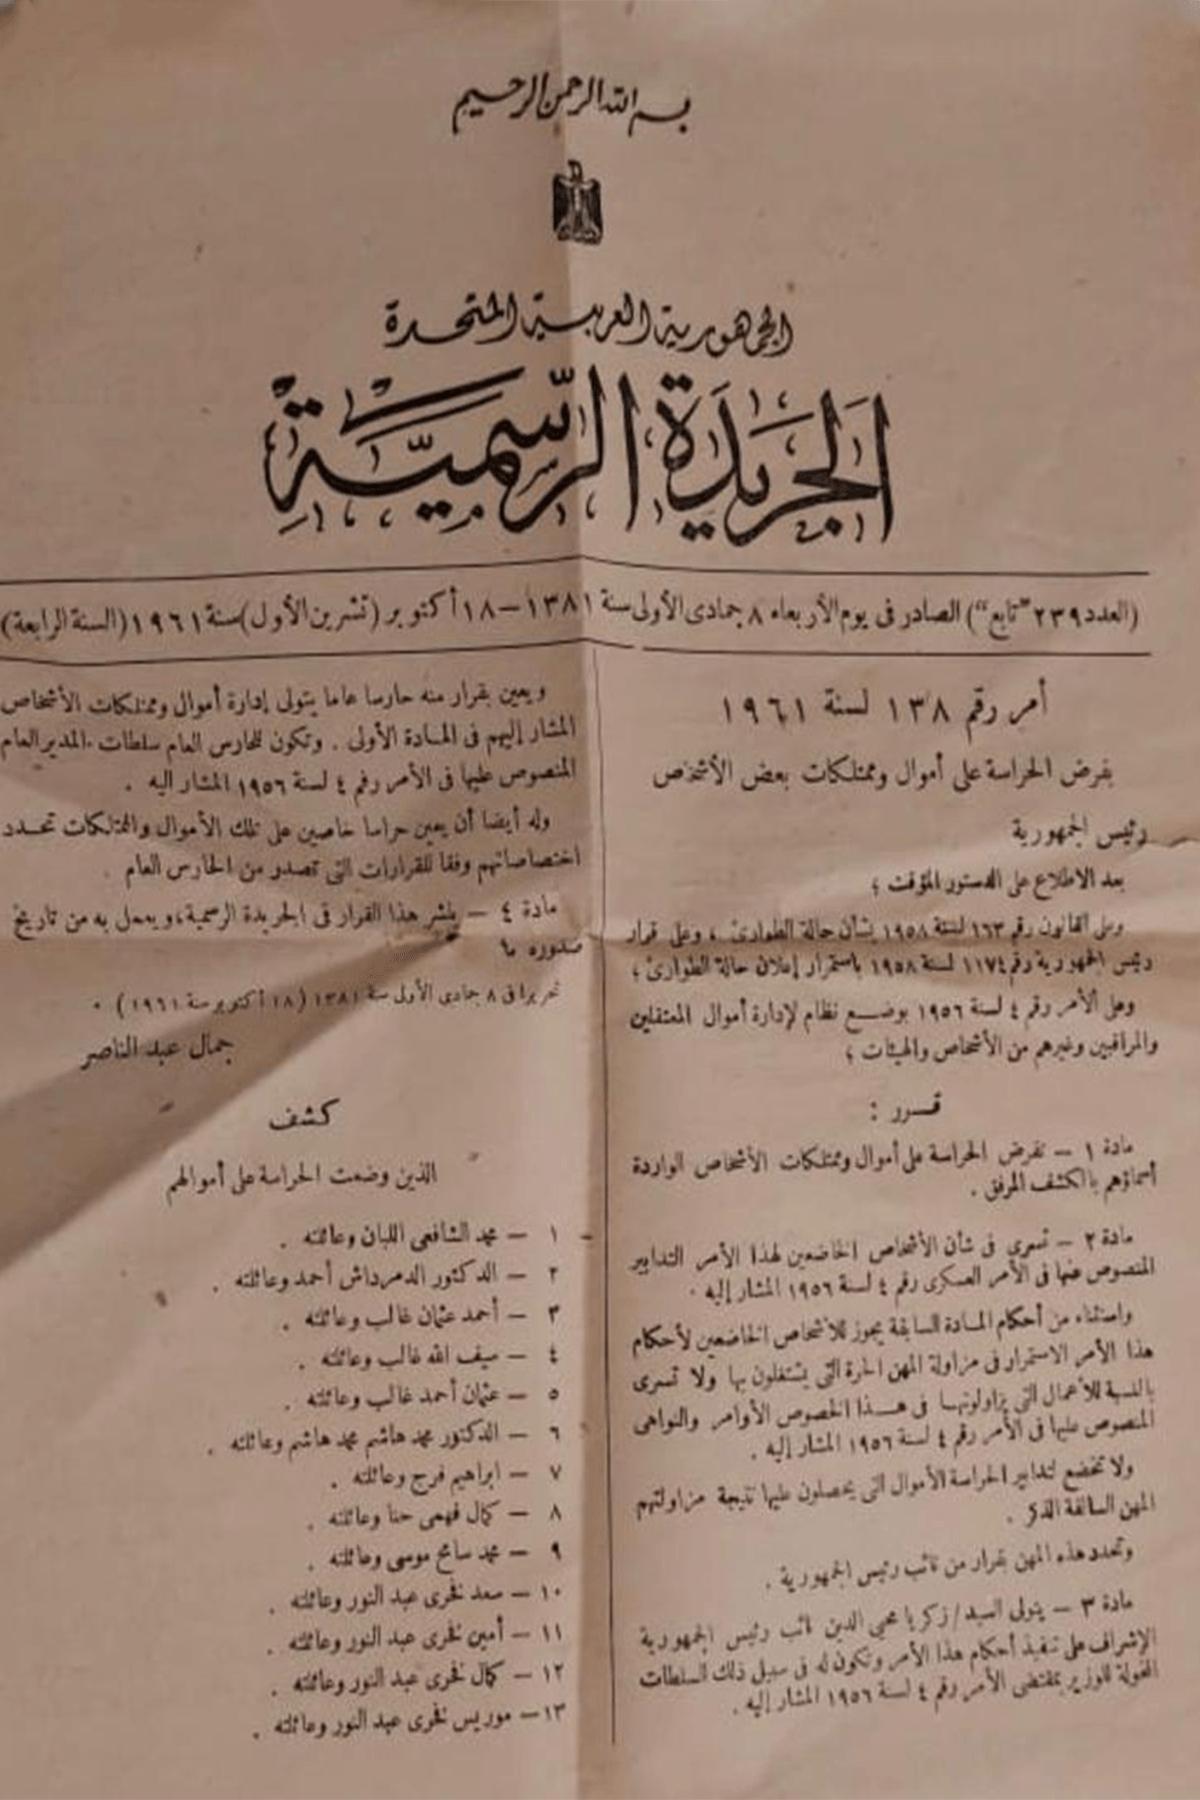 بسم الله الرحمن الرحيم
الجمهورية العربية المتحدة
الجَريَدة الرّسميَّة
(العدد ٢٣٩ "تابع") الصادر فى يوم الأربعاء ٨ جمادى الأولى سنة ١٣٨١ – ١٨ أكتوبر (تشرين الأول) سنة ١٩٦١ (السنة الرابعة)
أمر رقم ١٣٨ لسنة ١٩٦١
بفرض الحراسة على أموال وممتلكات بعض الأشخاص
رئيس الجمهورية
بعد الاطلاع على الدستور المؤقت ؛
وعلى القانون رقم ١٦٣ لسنة ١٩٥٨ بشأن حالة الطوارئ ، وعلى قرار
رئيس الجمهورية رقم ١١٧٤ لسنة ١٩٥٨ باستمرار إعلان حالة الطوارئ ؛
وعلى الأمر رقم ٤ لسنة ١٩٥٦ بوضع نظام لإدارة أموال المعتقلين
والمراقبين وغيرهم من الأشخاص والهيئات ؛
قرر :
مادة ١ – تفرض الحراسة على أموال وممتلكات الأشخاص الواردة
أسماؤهم بالكشف المرفق .
مادة ٢ – تسرى فى شأن الأشخاص الخاضعين لهذا الأمر التدابير
المنصوص عنها فى الأمر العسكرى رقم ٤ لسنة ١٩٥٦ المشار إليه .
واستثناء من أحكام المادة السابقة يجوز للأشخاص الخاضعين لأحكام
هذا الأمر الاستمرار فى مزاولة المهن الحرة التى يشتغلون بها ولا تسرى
بالنسبة للأعمال التى يزاولونها فى هذا الخصوص الأوامر والنواهى
المنصوص عليها فى الأمر رقم ٤ لسنة ١٩٥٦ المشار إليه .
ولا تخضع لتدابير الحراسة الأموال التى يحصلون عليها نتيجة مزاولتهم
المهن السالفة الذكر .
وتحدد هذه المهن بقرار من نائب رئيس الجمهورية .
مادة ٣ – يتولى السيد/ زكريا محيى الدين نائب رئيس الجمهورية
الإشراف على تنفيذ أحكام هذا الأمر وتكون له فى سبيل ذلك السلطات
المخولة للوزير بمقتضى الأمر رقم ٤ لسنة ١٩٥٦ المشار إليه .
ويعين بقرار منه حارسا عاما يتولى إدارة أموال وممتلكات الأشخاص
المشار إليهم فى المادة الأولى . وتكون للحارس العام سلطات المدير العام
المنصوص عليها فى الأمر رقم ٤ لسنة ١٩٥٦ المشار اليه .
وله أيضا أن يعين حراسا خاصين على تلك الأموال والممتلكات تحدد
اختصاصاتهم وفقا للقرارات التى تصدر من الحارس العام .
مادة ٤ – ينشر هذا القرار فى الجريدة الرسمية، ويعمل به من تاريخ
صدوره ؟
تحريرا فى ٨ جمادى الأولى سنة ١٣٨١ (١٨ أكتوبر سنة ١٩٦١) .
جمال عبد الناصر
كشف
الذين وضعت الحراسة على أموالهم
١ – محمد الشافعى اللبان وعائلته .
٢ – الدكتور الدمرداش أحمد وعائلته .
٣ – أحمد عثمان غالب وعائلته .
٤ – سيف الله غالب وعائلته .
٥ – عثمان أحمد غالب وعائلته .
٦ – الدكتور محمد هاشم محمد هاشم وعائلته .
٧ – ابراهيم فرج وعائلته .
٨ – كمال فهمى حنا وعائلته .
٩ – محمد سامح موسى وعائلته .
١٠ – سعد فخرى عبد النور وعائلته .
١١ – أمين فخرى عبد النور وعائلته .
١٢ – كمال فخرى عبد النور وعائلته .
١٣ – موريس فخرى عبد النور وعائلته .